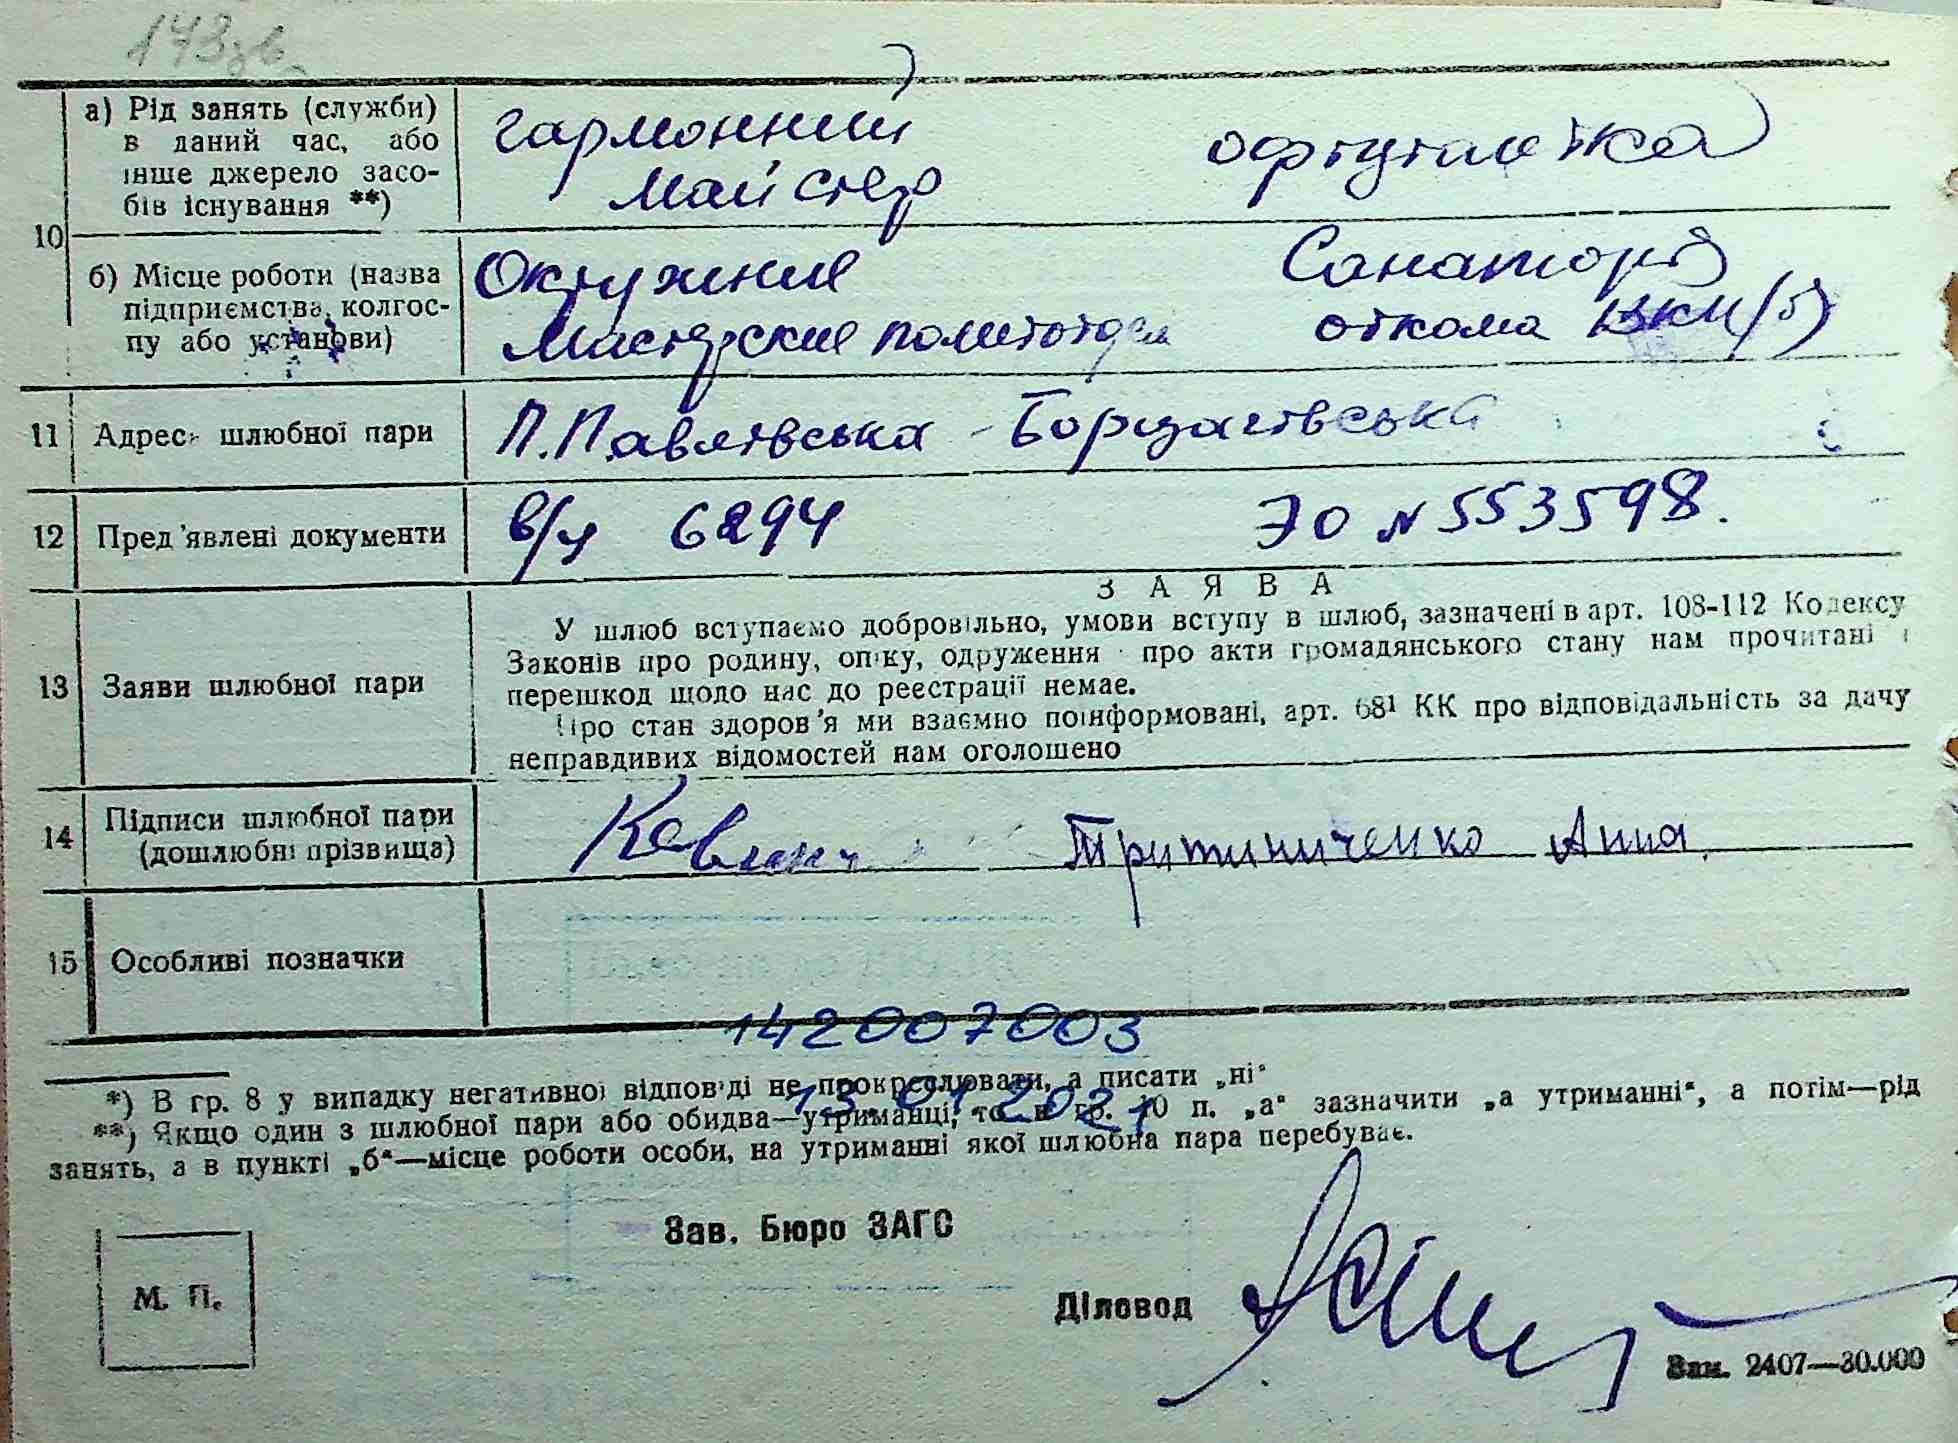 143зв.
а) Рід занять (служби)
в даний час, або
інше джерело засо-
бів існування **)
гармонний
майстер
офіціантка
10
б) Місце роботи (назва
підприємства, колгос-
пу або установи)
Окружние
Мастерские
Санаторія
вкп/б)
11 Адреса шлюбної пари
П.Павлівська - Борщагівська
12 Пред'явлені документи
в/ч 6294 ЭО №553598.
ЗАЯВА
13 Заяви шлюбної пари
У шлюб вступаємо добровільно, умови вступу в шлюб, зазначені в арт. 108-112 Кодексу
Законів про родину, опіку, одруження про акти громадянського стану нам прочитані і
перешкод щодо нас до реєстрації немає.
Про стан здоров'я ми взаємно поінформовані, арт. 68¹ КК про відповідальність за дачу
неправдивих відомостей нам оголошено
14 Підписи шлюбної пари
(дошлюбні прізвища)
Анна
15 Особливі позначки
142007003
13.01.2021
*) В гр. 8 у випадку негативної відповіді не прокреслювати, а писати „ні“
**) Якщо один з шлюбної пари або обидва—утриманці, то в гр. 10 п. „а“ зазначити „а утриманні“, а потім—рід
занять, а в пункті „б“—місце роботи особи, на утриманні якої шлюбна пара перебуває.
Зав. Бюро ЗАГС
М. П.
Діловод
Зам. 2407—30.000